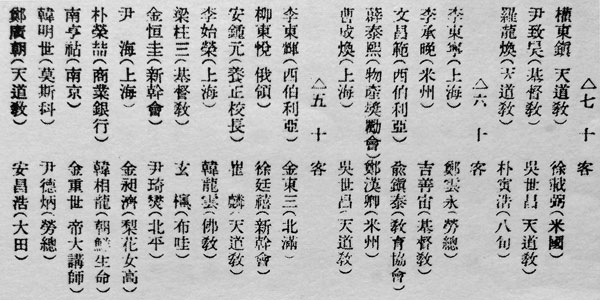 △七十客
權東鎭 天道敎) 徐載弼(米國)
尹致昊(基督敎) 吳世昌 天道敎)
羅龍煥(天道敎) 朴寅浩(八旬)
△六十客
李東寧(上海) 鄭雲永 勞總)
李承晩(米州) 吉善宙(基督敎)
文昌範(西伯利亞) 兪鎭泰(敎育協會)
薛泰熙(物産奬勵會) 鄭漢卿(米州)
曹成煥(上海) 吳世昌 天道敎)
△五十客
李東輝(西伯利亞) 金東三(北滿)
柳東悅 俄領) 徐廷禧(新幹會)
安鍾元(養正校長) 崔 麟(天道敎)
李始榮(上海) 韓龍雲(佛敎)
梁柱三(基督敎) 玄 楯(布哇)
金恒圭(新幹會) 尹琦燮(北平)
尹 海(上海) 金昶濟(梨花女高)
朴榮喆(商業銀行) 韓相龍(朝鮮生命)
南亨祐(南京) 金重世 帝大講師)
韓明世(莫斯科) 尹德炳(勞總)
鄭廣朝(天道敎) 安昌浩(大田)